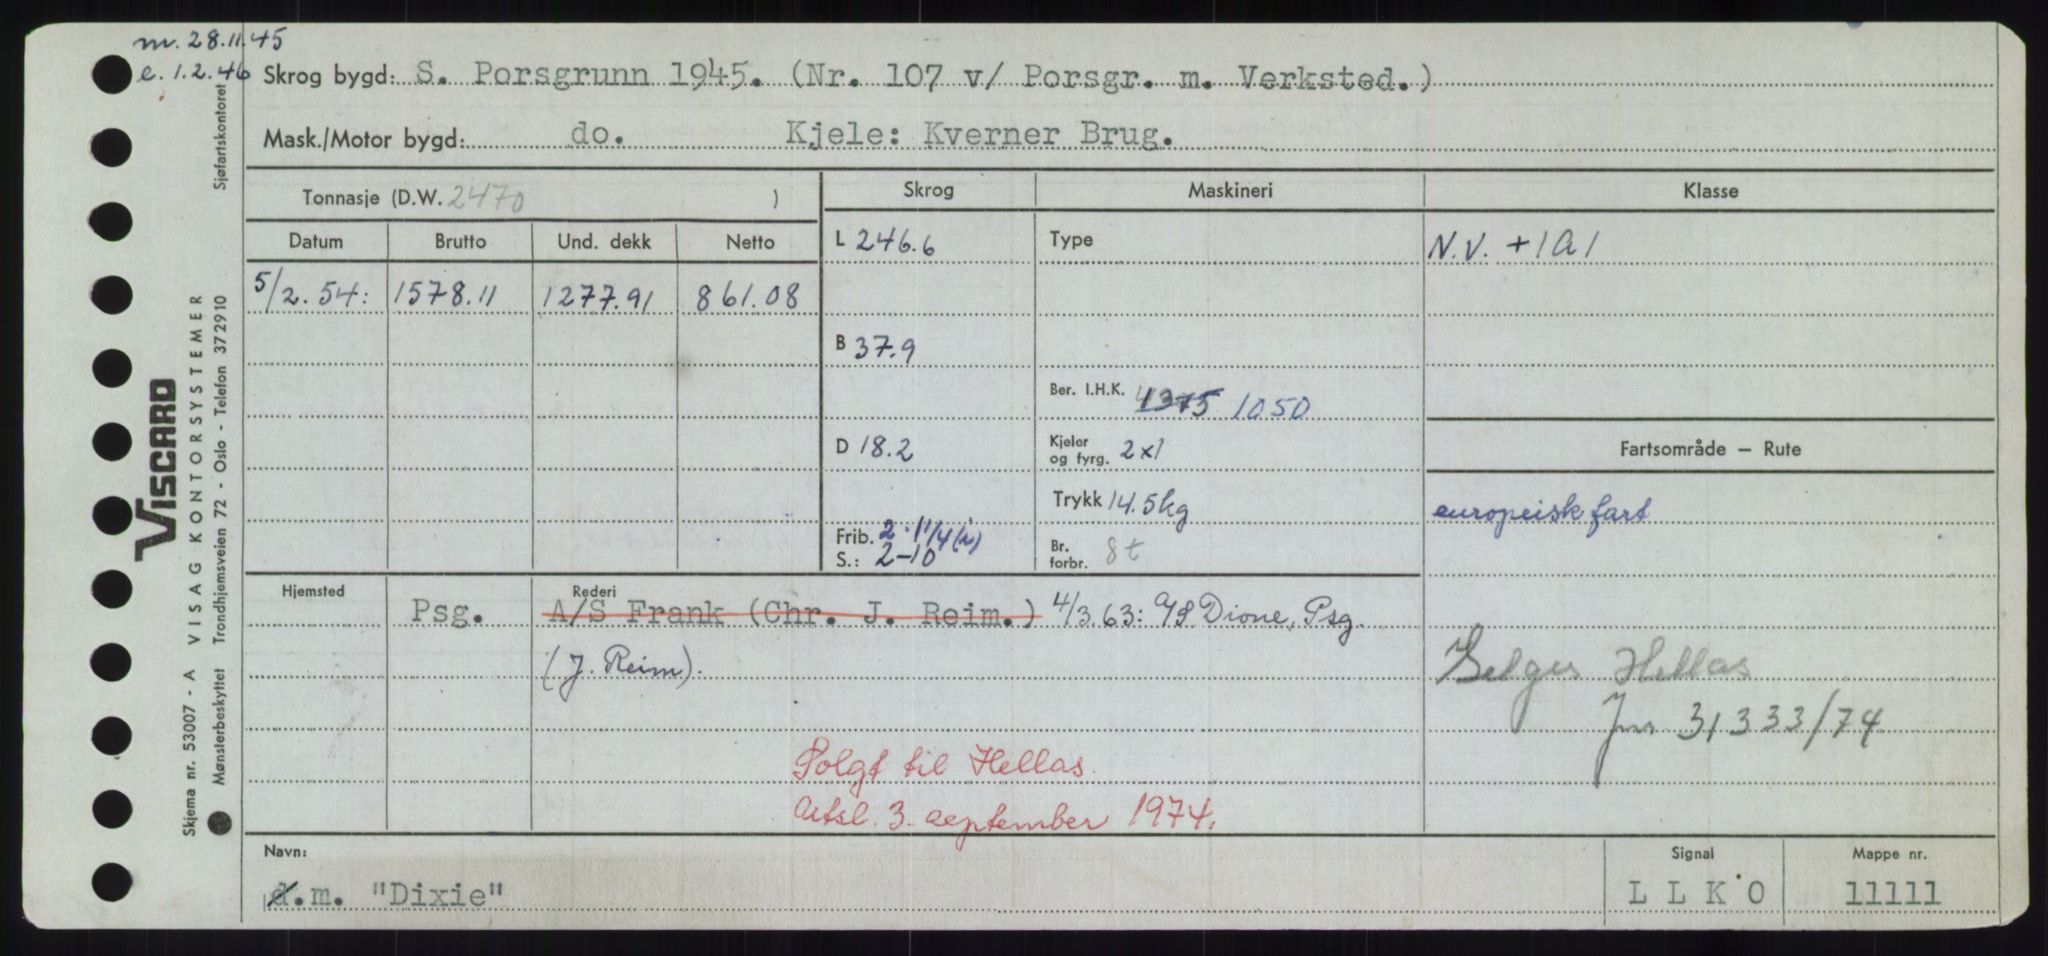 m. 28.11.45
e. 1.2.46
Skrog bygd: S. Porsgrunn 1945. (Nr. 107 v/ Porsgr. m. Verksted.)
Mask./Motor bygd: do. Kjele: Kverner Brug.
Tonnasje (D.W. 2470 )
Skrog Maskineri Klasse
Datum Brutto Und. dekk Netto
L 246.6 Type N.V. +1A1
5/2.54: 1578.11 1277.91 861.08
B 37.9
Ber. I.H.K. 1375 1050
D 18.2 Kjeler og fyrg. 2x1 Fartsområde — Rute
Trykk 14.5kg europeisk fart
Frib. 2-11/4(i)
S.: 2-10 Br. forbr. 8 t
Hjemsted Rederi
Psg. A/S Frank (Chr. J. Reim.) 4/3.63: A/S Dione, Psg.
(J. Reim).
Selges Hellas
Jnr 31333/74
Solgt til Hellas.
Utsl. 3. september 1974.
Navn: Signal Mappe nr.
d.m. "Dixie" L L K O 11111
VISCARD
VISAG KONTORSYSTEMER
Skjema nr. 53007 - A
Mønsterbeskyttet Trondhjemsveien 72 - Oslo - Telefon 372910
Sjøfartskontoret